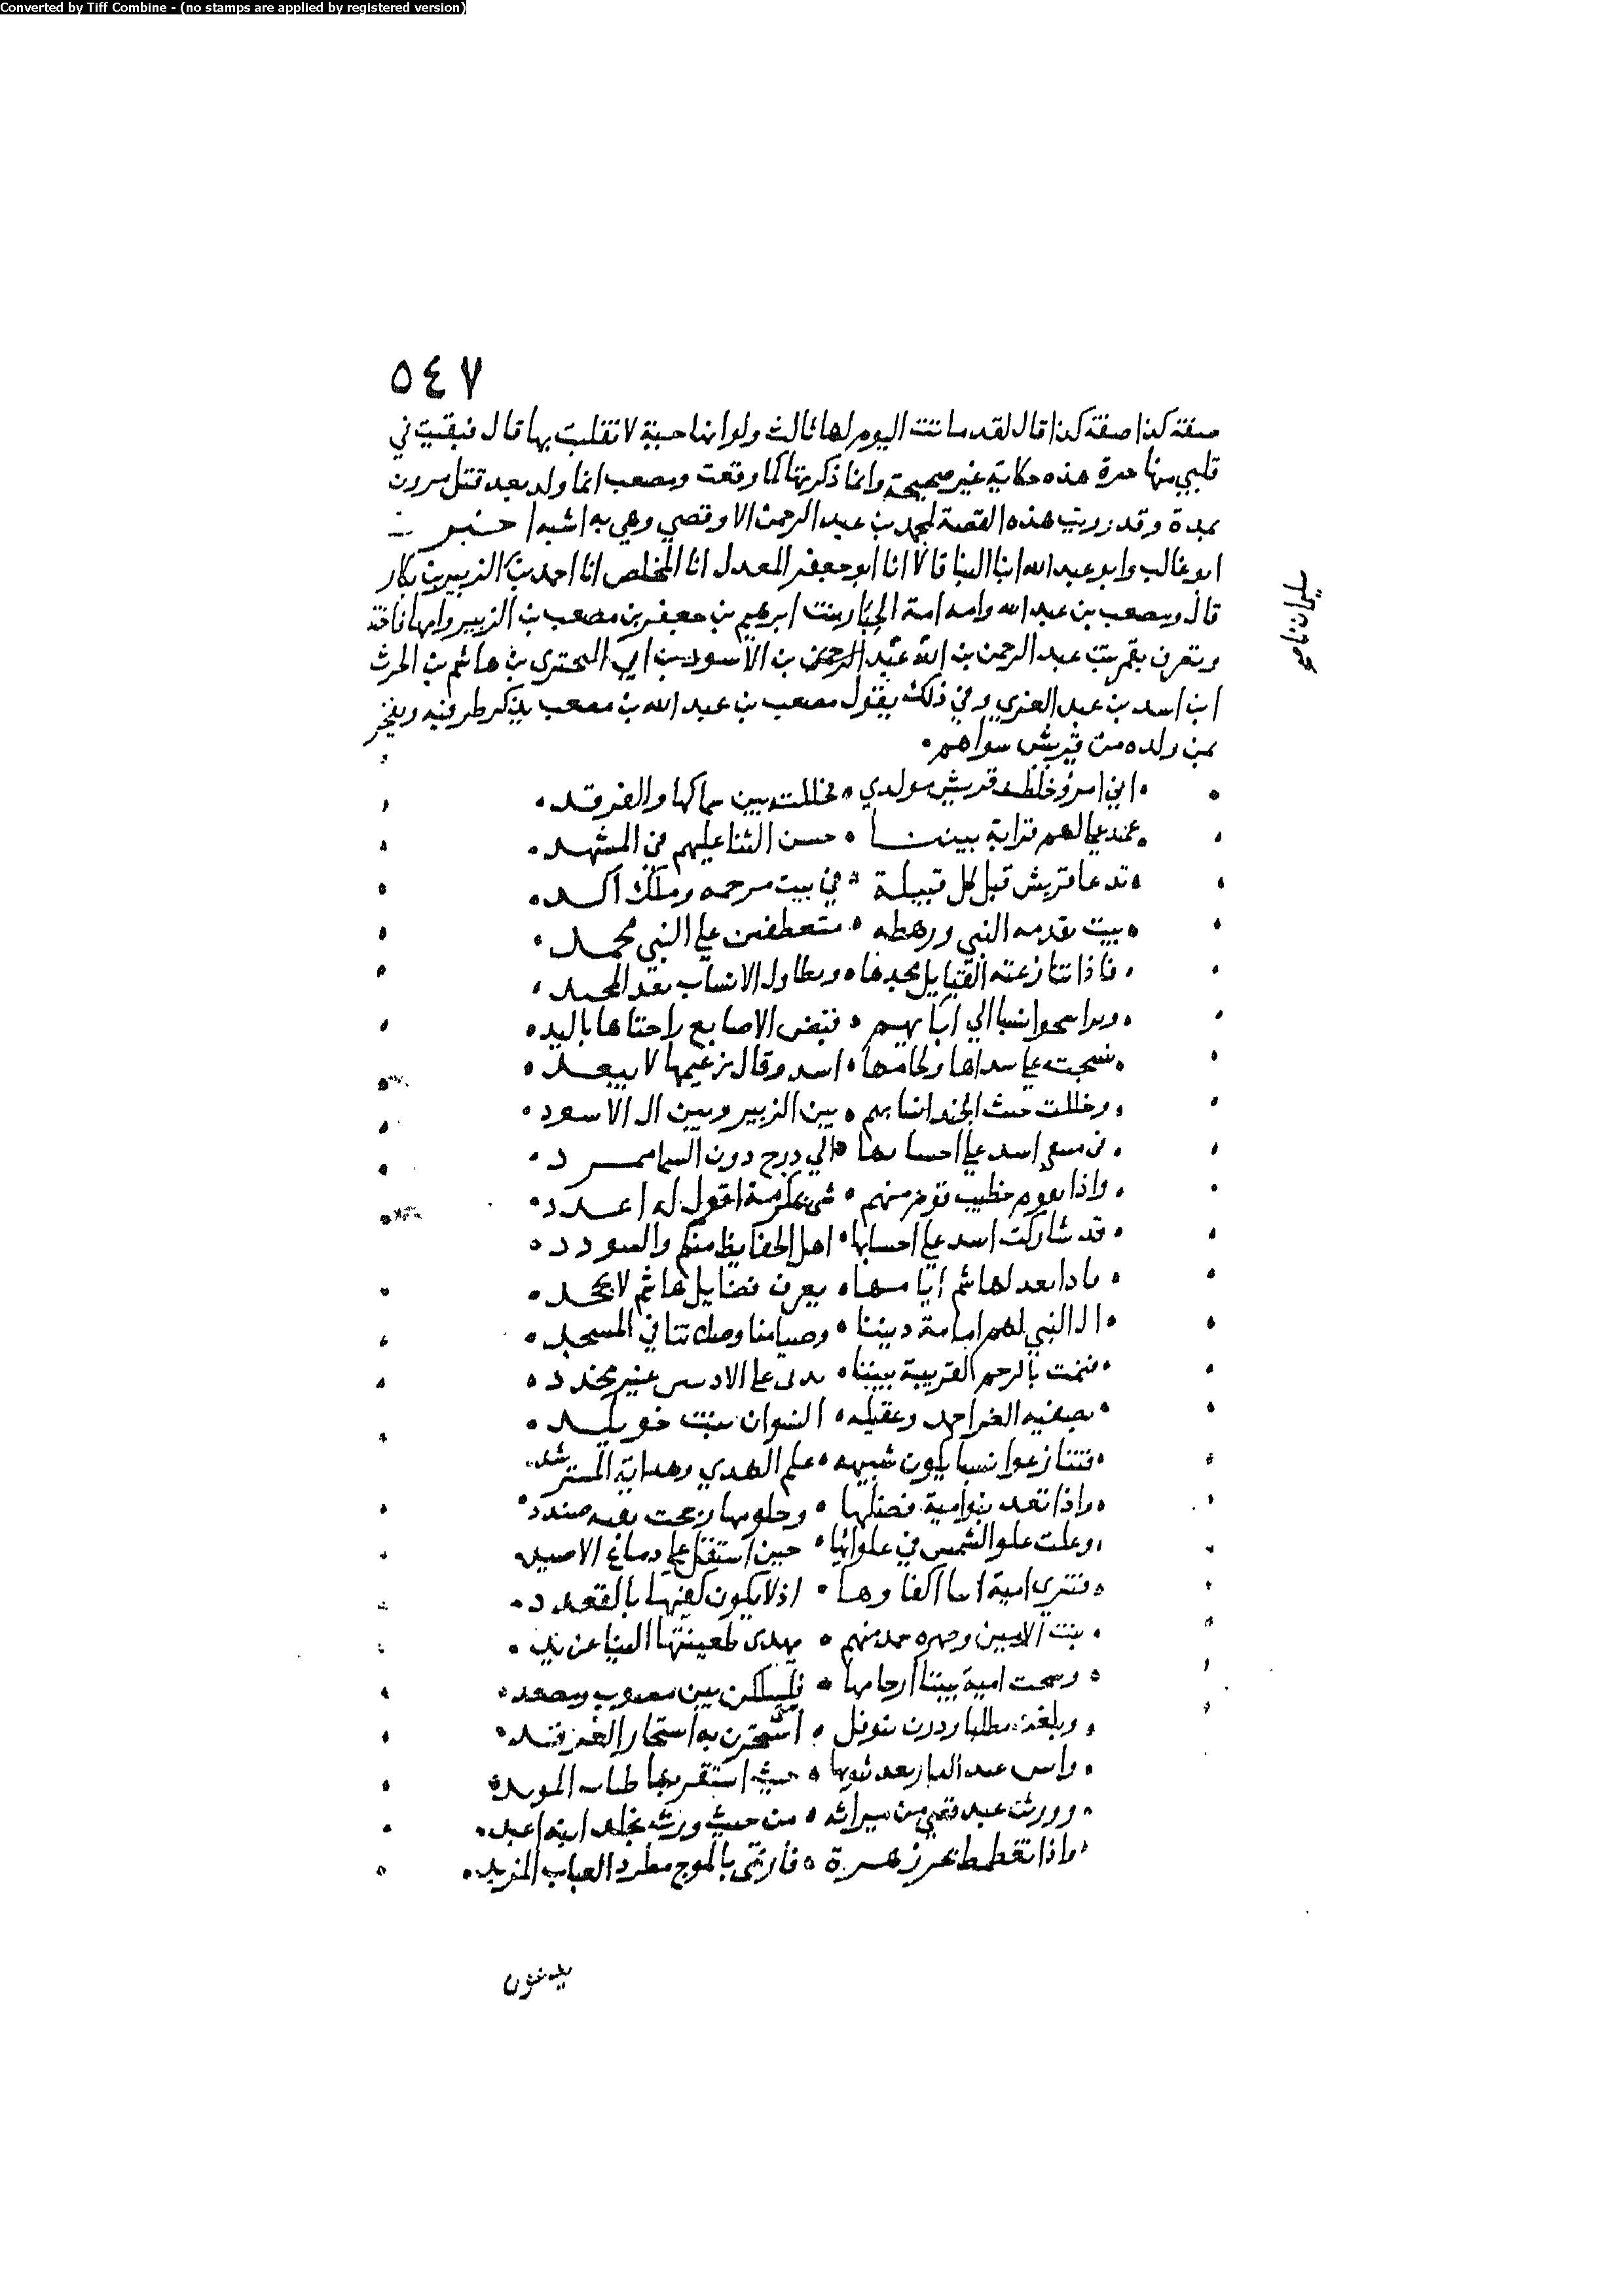 Converted by Tiff Combine - (no stamps are applied by registered version)
٥٤٧
صفته كذا صفته كذا قال لقد ماتت اليوم لها ثالث ولو انها حية لا تقلبت بها قال فبقيت في
قلبي منها حسرة هذه حكاية غير صحيحة وانما ذكرتها كما وقعت ومصعب انما ولد بعد قتل مرون
بمدة وقد رويت هذه القصة لمحمد بن عبد الرحمن الاوقصي وهي به اشبه اخبر
ابو غالب وابو عبد الله ابنا البنا قالا انا ابو جعفر المعدل انا المخلص انا احمد بن الزبير بن بكار
قال ومصعب بن عبد الله وامه امة الجبار بنت ابرهيم بن جعفر بن مصعب بن الزبير وامها فاختة
وتعرف بقمر بنت عبد الرحمن بن الله عبد الرحمن بن الاسود بن ابي البحتري بن هاشم بن الحرث
ابن اسد بن عبد العزي وفي ذلك يقول مصعب بن عبد الله بن مصعب يذكر طرفيه ويفخر
بمن ولده من قريش سواهم
اني امرؤ خلطت قريش مولدي فحللت بين سماكها والفرقد
عندي لهم قرابة بيننا حسن الثنا عليهم في المشهد
تدعا قريش قبل كل قبيلة في بيت مرحمه وملك اكد
بيت تقدمه النبي ورهطه متعطفين علي النبي محمد
فاذا تنازعته القبايل مجدها وتطاول الانساب بعد المحتد
وتراسحوا نسبا الي ابايهم فتبض الاصابع راحتاها باليد
نسجت علي سداها ولحامتها اسد وقال زعيمها لا يبعد
وحللت حيث الجند انسابهم بين الزبير وبين ال الاسود
في مسعي اسد علي احسابها الي درج دون السما
واذا يقوم خطيب قوم منهم مكرمة اقول له اعدد
قد شاركت اسد علي احسابها اهل الحفايظ منكم والسودد
ماذا بعد لهاشم ايامها يعرف فضايل هاشم لا يجحد
ال النبي لهم امامة ديننا وصيامنا وصلاتنا في المسجد
فنمت بالرحم القريبة بيننا علي غير مخدد
بصفيه الغر احمد وعقيله النسوان بنت خويلد
فتنازعوا نسبا يكون شبيهه علم الهدي وهداية المسترشد
واذا تعد بنو امية فضلها وحلومها رجحت
وعلت علو الشمس في علوائها حين استقل علي دماغ الاصيد
فتري امية اننا اكفاوها اذ لا يكون كفيها بالقعدد
بنت الامين وصهره منهم يهدي ظعينتها الينا عن يد
وسجت امية بيننا ارحامها فليسلكن بين مصوب ومصعد
وبلغت مطلبا وردت بنوفل
وراس عبد الدار بعد حيث استقر بها
وورثت عبد قصي من ميراثه من حيث ورث مخلد ابنه اعبد
واذا تغطمط بحر زهرة فارتمى بالموج مطرد العباب المزبد
يدعون